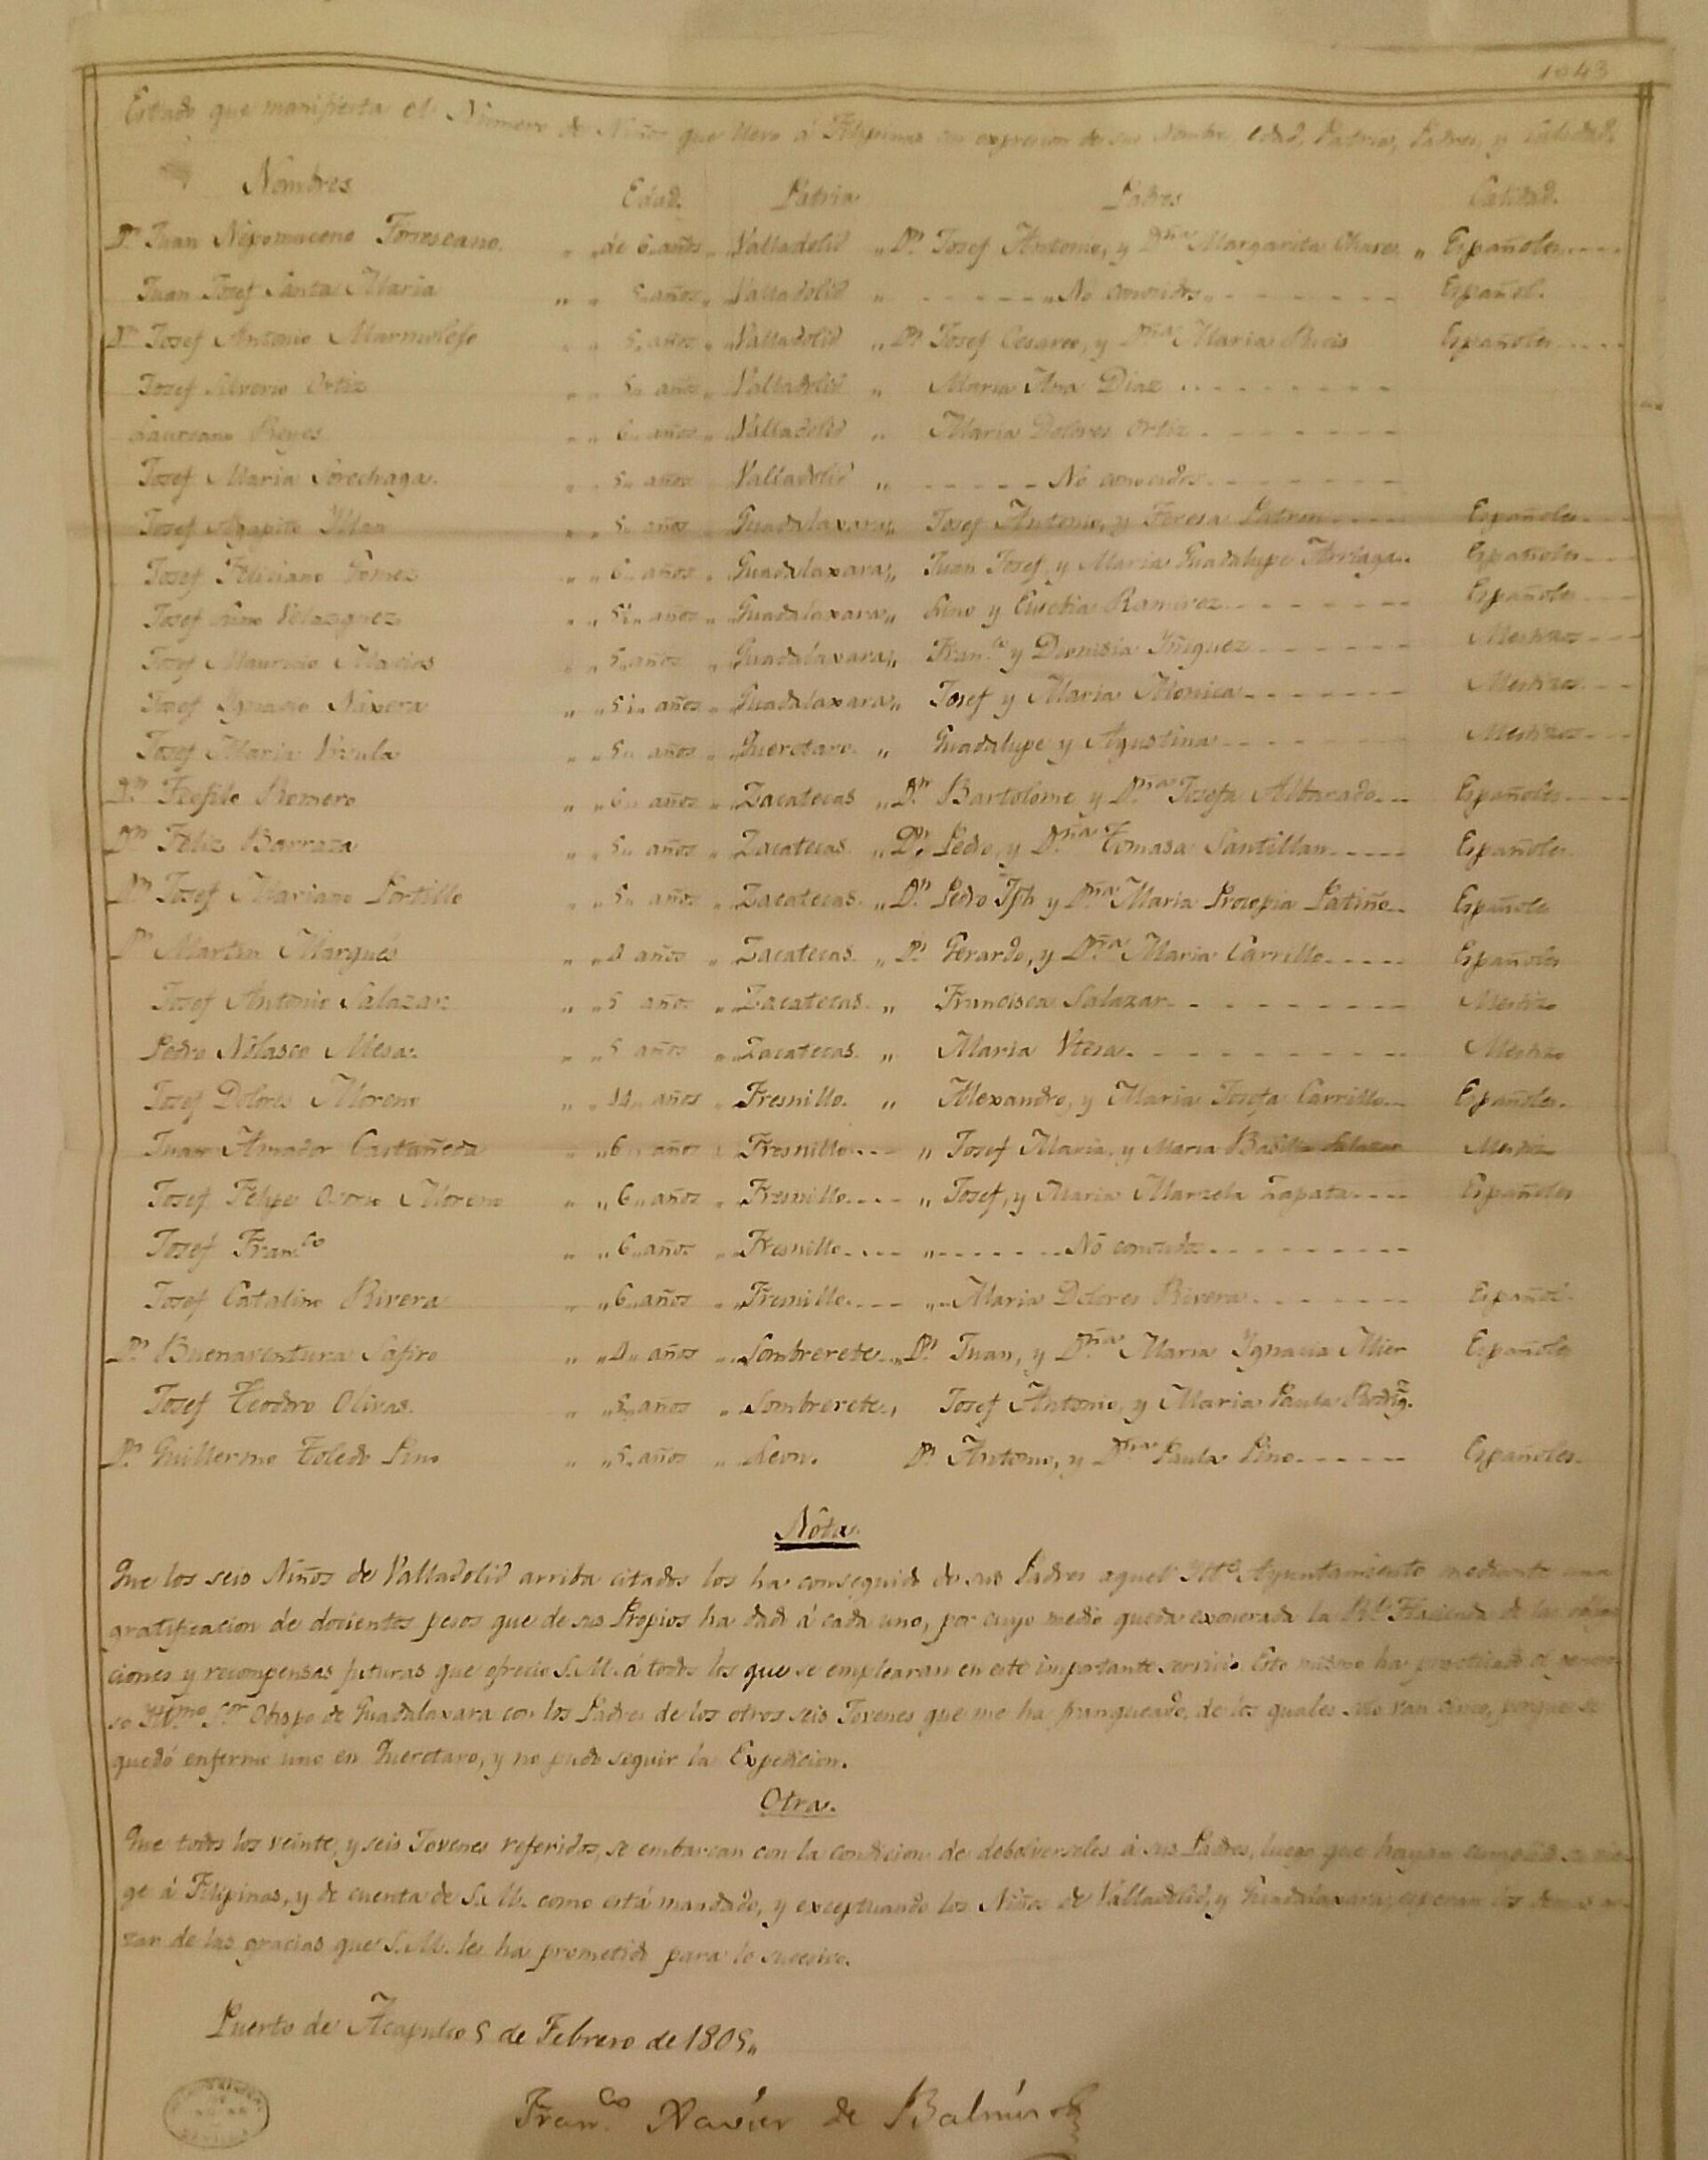 1043
Estado que manifiesta el Número de Niños que llevo á Filipinas con expresion de sus Nombre, edad, Patria, Padres, y calidad.
Nombres Edad. Patria Padres Calidad.
Dn. Juan Nepomuceno Forrescano. „ „de 6 años „ Valladolid „ Dn. Josef Antonio, y Dña. Margarita Chares „ Españoles
Juan Josef Santa Maria „ „ 5 años „ Valladolid „ No conocidos Español.
Dn. Josef Antonio Marmolejo „ „ 5 años „ Valladolid „ Dn. Josef Cesareo, y Dña. Maria Españoles
Josef Silverio Ortiz „ „ 5 años „ Valladolid „ Maria Ana Diaz
Laureano Reyes „ „ 6 años „ Valladolid „ Maria Dolores Ortiz
Josef Maria Lorechaga. „ „ 5 años Valladolid „ No conocidos
Josef Agapito Yllan „ „ 5 años Guadalaxara „ Josef Antonio, y Teresa Patron Españoles
Josef Feliciano Gomez „ „ 6 años „ Guadalaxara „ Juan Josef y Maria Guadalupe Arriaga. Españoles
Josef Lino Velazquez „ „ 5 años „ Guadalaxara „ Lino y Ramirez Españoles
Josef Mauricio Macias „ „ 5 años „ Guadalaxara „ Fran.co y Dionisia Yñiguez Mestizos
Josef Ygnacio Naxera „ „ 5 años „ Guadalaxara „ Josef y Maria Monica Mestizos
Josef Maria Vrsula „ „ 5 años „ Queretaro. „ Guadalupe y Agustina Mestizos
Dn. Teofilo Romero „ „ 6 años „ Zacatecas „ Dn. Bartolome y Dña. Josefa Albarado Españoles
Dn. Feliz Barraza „ „ 5 años „ Zacatecas. „ Dn. Pedro, y Dña. Tomasa Santillan Españoles
Dn. Josef Mariano Portillo „ „ 5 años „ Zacatecas. „ Dn. Pedro Jph y Dña. Maria Procopia Patiño Españoles
Dn. Martin Marques „ „ 4 años „ Zacatecas. „ Dn. Gerardo, y Dña. Maria Carrillo Españoles
Josef Antonio Salazar „ „ 5 años „ Zacatecas. „ Francisca Salazar Mestizo
Pedro Nolasco Mesa. „ „ 5 años „ Zacatecas. „ Maria Mestizo
Josef Dolores Moreno „ „ 14 años „ Fresnillo. „ Alexandro, y Maria Josefa Carrillo Españoles.
Juan Amador Castañeda „ „ 6 años „ Fresnillo „ Josef Maria, y Maria Basilia Salazar Mestizo
Josef Felipe Osorio Moreno „ „ 6 años „ Fresnillo „ Josef, y Maria Marzela Zapata Españoles
Josef Fran.co „ „ 6 años „ Fresnillo „ No conocidos
Josef Catalino Rivera „ „ 6 años „ Fresnillo „ Maria Dolores Rivera Español.
Dn. Buenaventura Safiro „ „ 4 años „ Sombrerete „ Dn. Juan, y Dña. Maria Ygnacia Mier Españoles
Josef Teodoro Olivas. „ „ 5 años „ Sombrerete, Josef Antonio, y Maria Paula Rodrig.
Dn. Guillermo Toledo Pino „ „ 5 años „ Leon. Dn. Antonio, y Dña. Paula Pino Españoles.
Nota.
Que los seis Niños de Valladolid arriba citados los ha conseguido de sus Padres aquel Ytte. Ayuntamiento mediante una
gratificacion de docientos pesos que de sus Propios ha dado á cada uno, por cuyo medio queda exonerada la Rl. Hacienda de las obliga
ciones y recompensas futuras que ofrecio S.M. á todos los que se emplearan en este importante servicio. Esto mismo ha practicado el
so Yttmo. Sor. Obispo de Guadalaxara con los Padres de los otros seis Jovenes que me ha franqueado, de los quales solo van cinco, porque se
quedó enfermo uno en Queretaro, y no pudo seguir la Expedicion.
Otra.
Que todos los veinte, y seis Jovenes referidos, se embarcan con la condicion de debolverseles á sus Padres, luego que hayan cumplido su via
ge á Filipinas, y de cuenta de S.M. como está mandado, y exceptuando los Niños de Valladolid, y Guadalaxara, esperan los demas go
zar de las gracias que S.M. les ha prometido para lo sucesivo.
Puerto de Acapulco 5 de Febrero de 1805„
Fran.co Xavier de Balmis